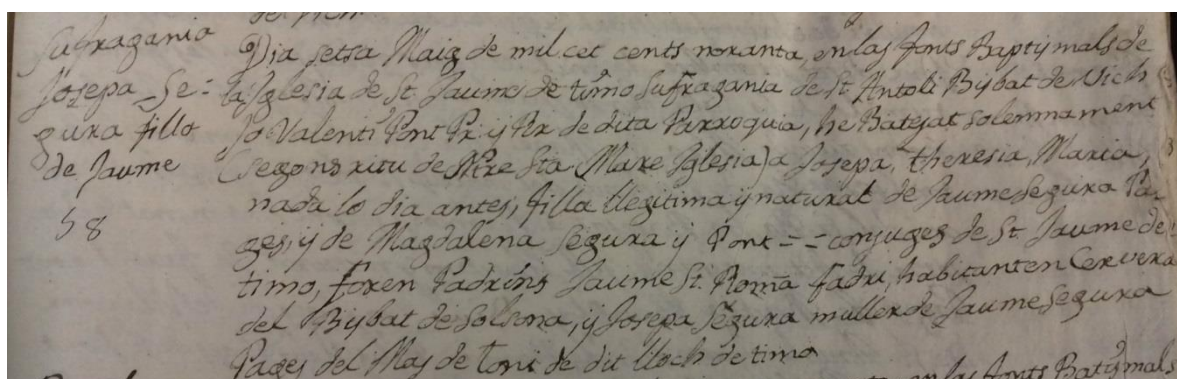 Sufragania
Josepa Se=
gura filla
de Jaume
58
Dia setsa Maig de mil cet cents noranta, en las fonts Baptismals de
la Iglesia de St. Jaume de timo Sufragania de St. Antoli Bisbat de Vich
Jo Valenti Pont Pr. y Rr. de dita Parroquia, he Batejat solemnament
(segons ritu de Ntre Sta. Mare Iglesia) a Josepa, theresia, Maria,
nada lo dia antes, filla llegitima y natural de Jaume Segura Pa-
ges, y de Magdalena Segura y Pont = = conjuges de St. Jaume de
timo, foren Padrins Jaume St. Romà fadri, habitant en Cervera
del Bisbat de Solsona, y Josepa Segura muller de Jaume Segura
Pages del Mas de Toni de dit lloch de timo
en las fonts Batismals